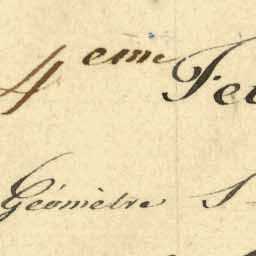 4eme Fe
Géomètre S